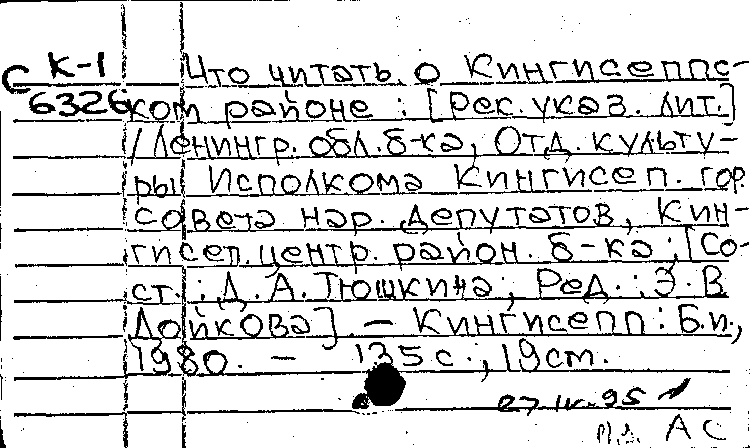 С К-1
6326
Что читать о Кингисеппс-
ком районе : [Рек. указ. лит.]
/Ленингр. обл. б-ка, Отд. культу-
ры Исполкома Кингисеп. гор.
совета нар. депутатов, Кин-
гисеп. центр. район. б-ка ; [Со-
ст. : Д. А. Тюшкина ; Ред. : Э. В
Дойкова]. — Кингисепп : Б.и.,
1980. — 135 с. ; 19 см.
27.IV.95
АС